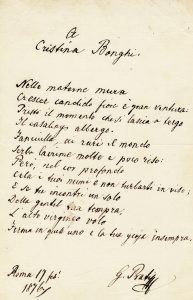 A
Cristina Bonghi.
Nelle materne mura
Crescer candido fior è gran ventura.
Tristo il momento che si lascia a tergo
Il casalingo albergo.
Fanciulla, di rari il mondo
Serba lacrime molte e poco riso:
Però, nel cor profondo
Celà i tuoi numi e non turbarti in viso;
E se tu incontri un solo
Della gentil tua tempra,
L'alto virgineo volo
Ferma in quell'uno e la tua gioja insempra.
Roma 17
1876
G. Prati